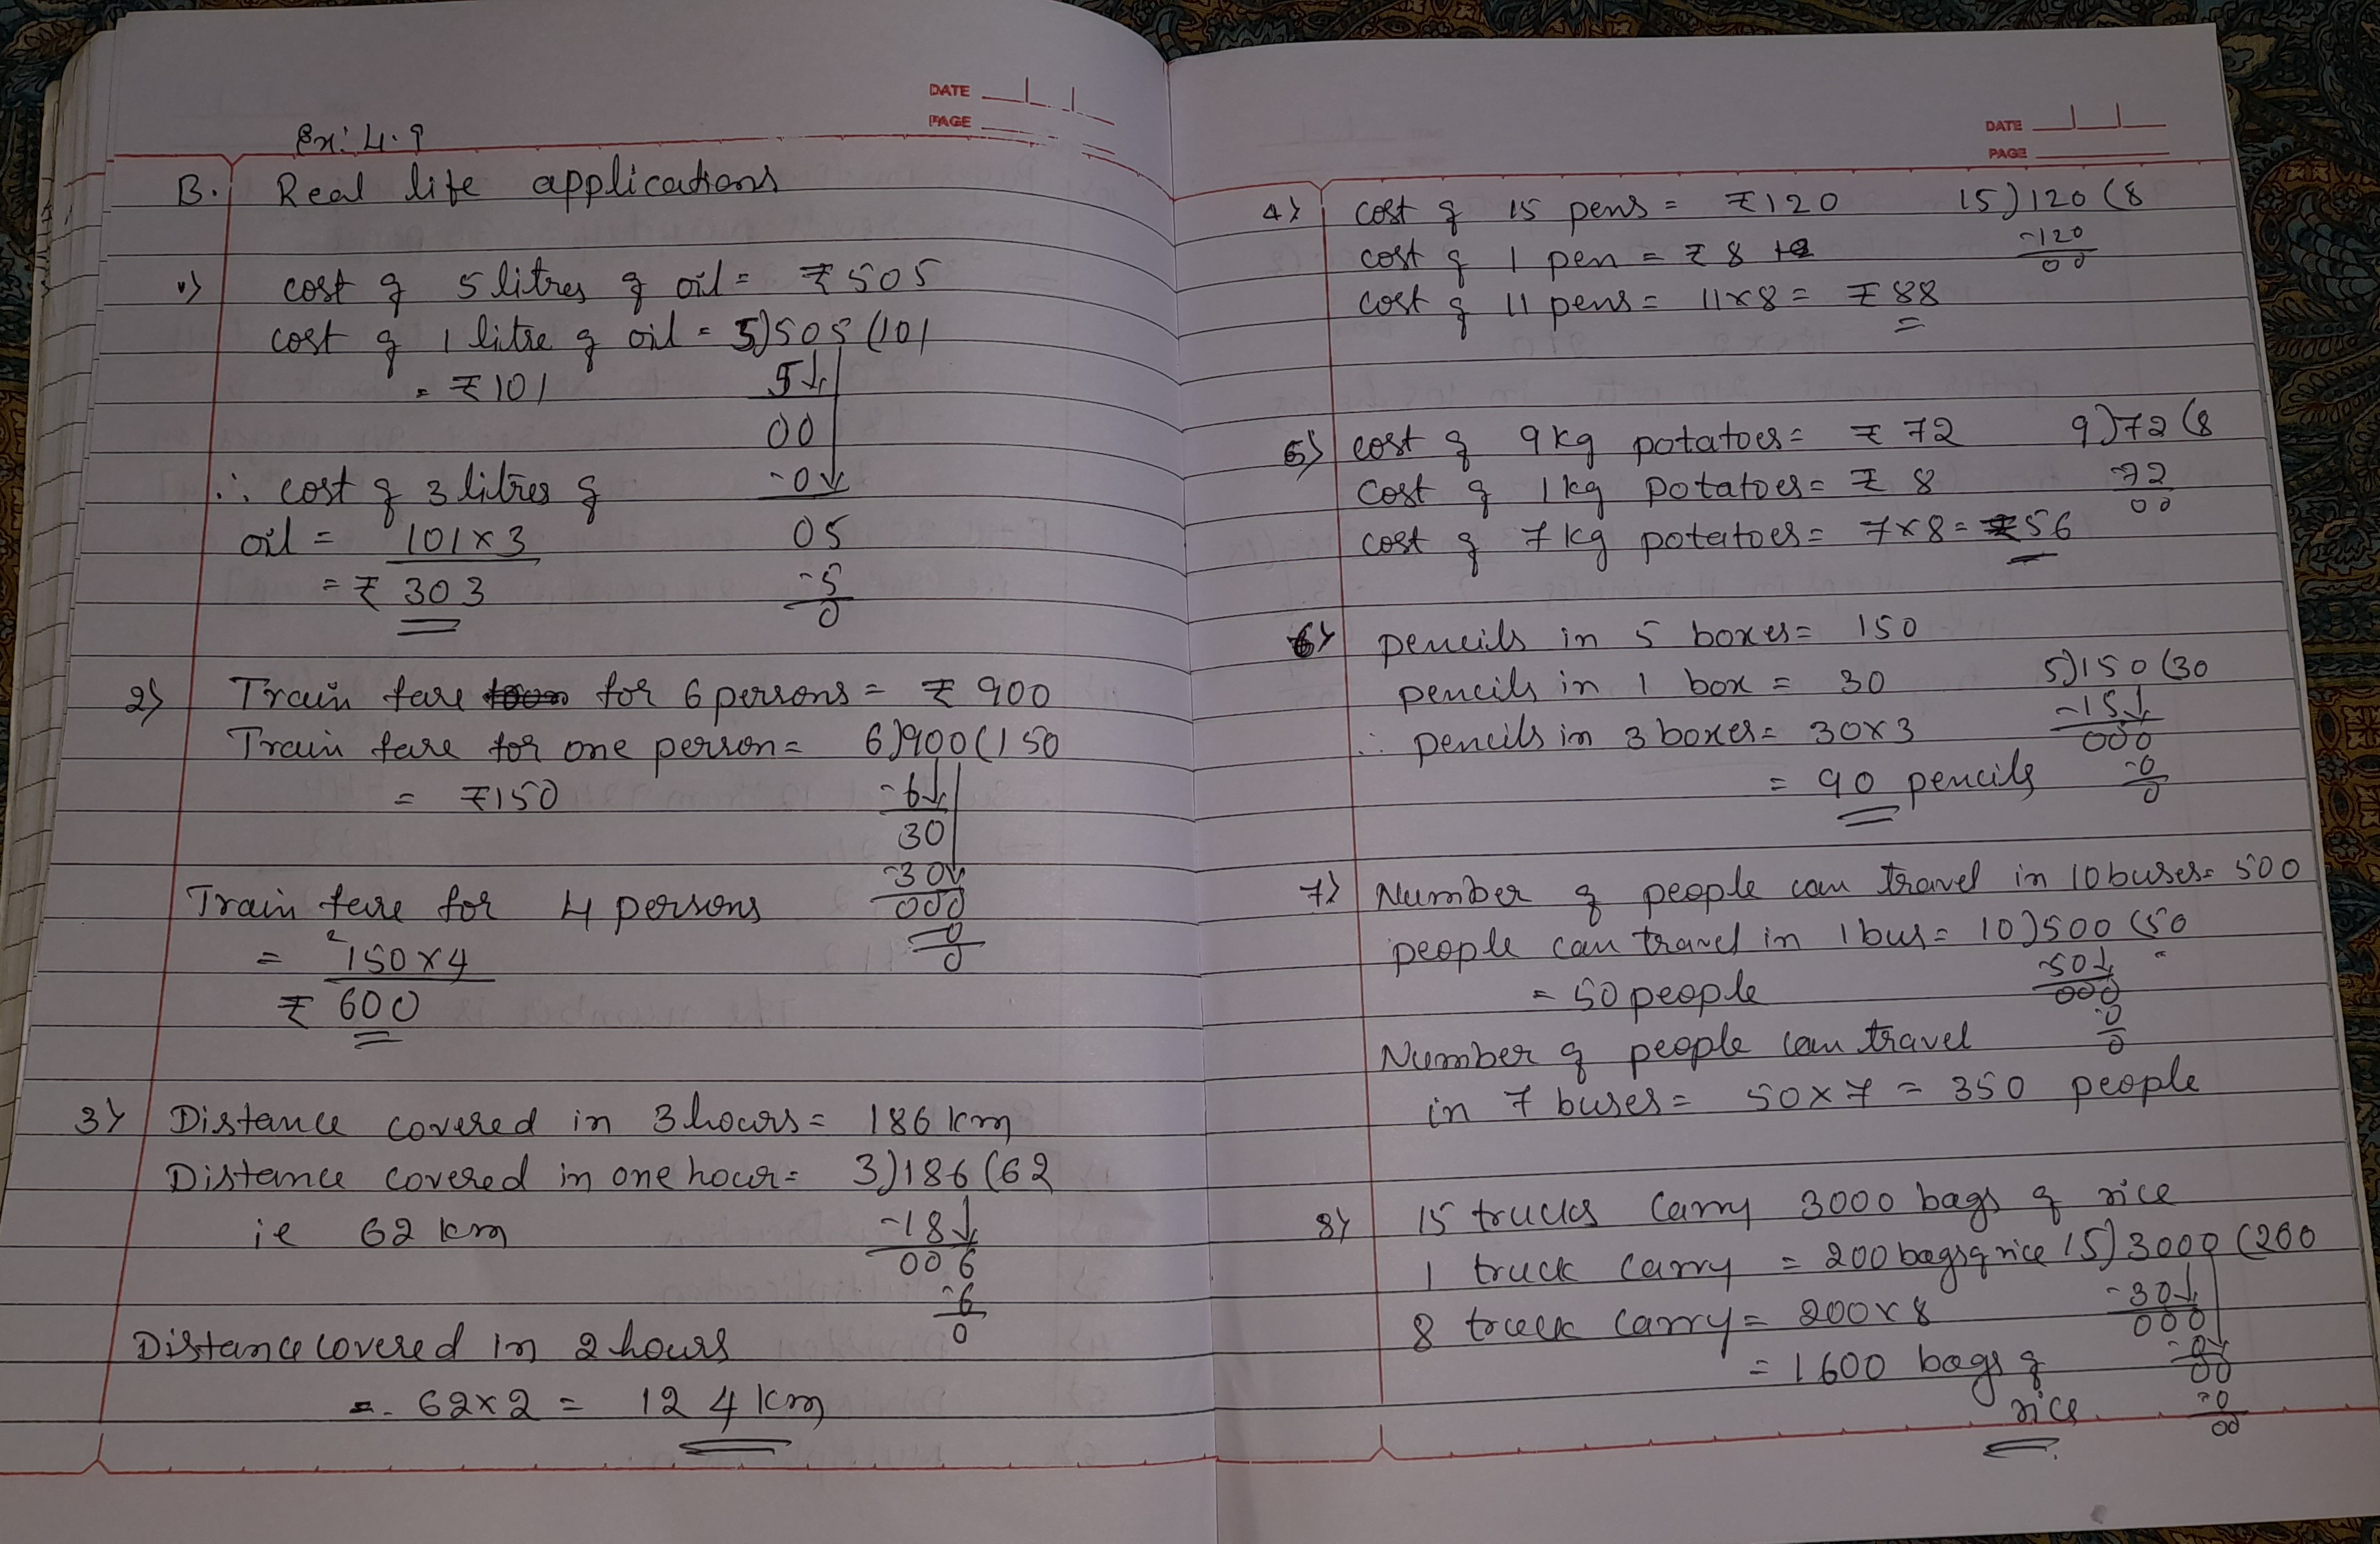 DATE
PAGE
Ex: 4.9
B. Real life applications
1) cost of 5 litres of oil = ₹505
cost of 1 litre of oil = 5)505(101
= ₹101 5
00
∴ cost of 3 litres of -0
oil = 101×3 05
= ₹303 -5
0
2) Train fare for 6 persons = ₹900
Train fare for one person = 6)900(150
= ₹150 -6
30
-30
Train fare for 4 persons 000
= ²150×4 -0
0
₹600
3) Distance covered in 3 hours = 186 km
Distance covered in one hour = 3)186(62
ie 62 km -18
006
-6
Distance covered in 2 hours 0
= 62×2 = 124 km
DATE
PAGE
4) cost of 15 pens = ₹120 15)120(8
cost of 1 pen = ₹8 -120
00
cost of 11 pens = 11×8 = ₹88
5) cost of 9 kg potatoes = ₹72 9)72(8
cost of 1 kg potatoes = ₹8 -72
cost of 7 kg potatoes = 7×8 = ₹56 00
6) pencils in 5 boxes = 150
pencils in 1 box = 30 5)150(30
∴ pencils in 3 boxes = 30×3 -15
000
= 90 pencils -0
0
7) Number of people can travel in 10 buses = 500
people can travel in 1 bus = 10)500(50
= 50 people -50
000
Number of people can travel -0
0
in 7 buses = 50×7 = 350 people
8) 15 trucks carry 3000 bags of rice
1 truck carry = 200 bags of rice 15)3000(200
8 truck carry = 200×8 -30
000
= 1600 bags of -0
00
rice -0
00